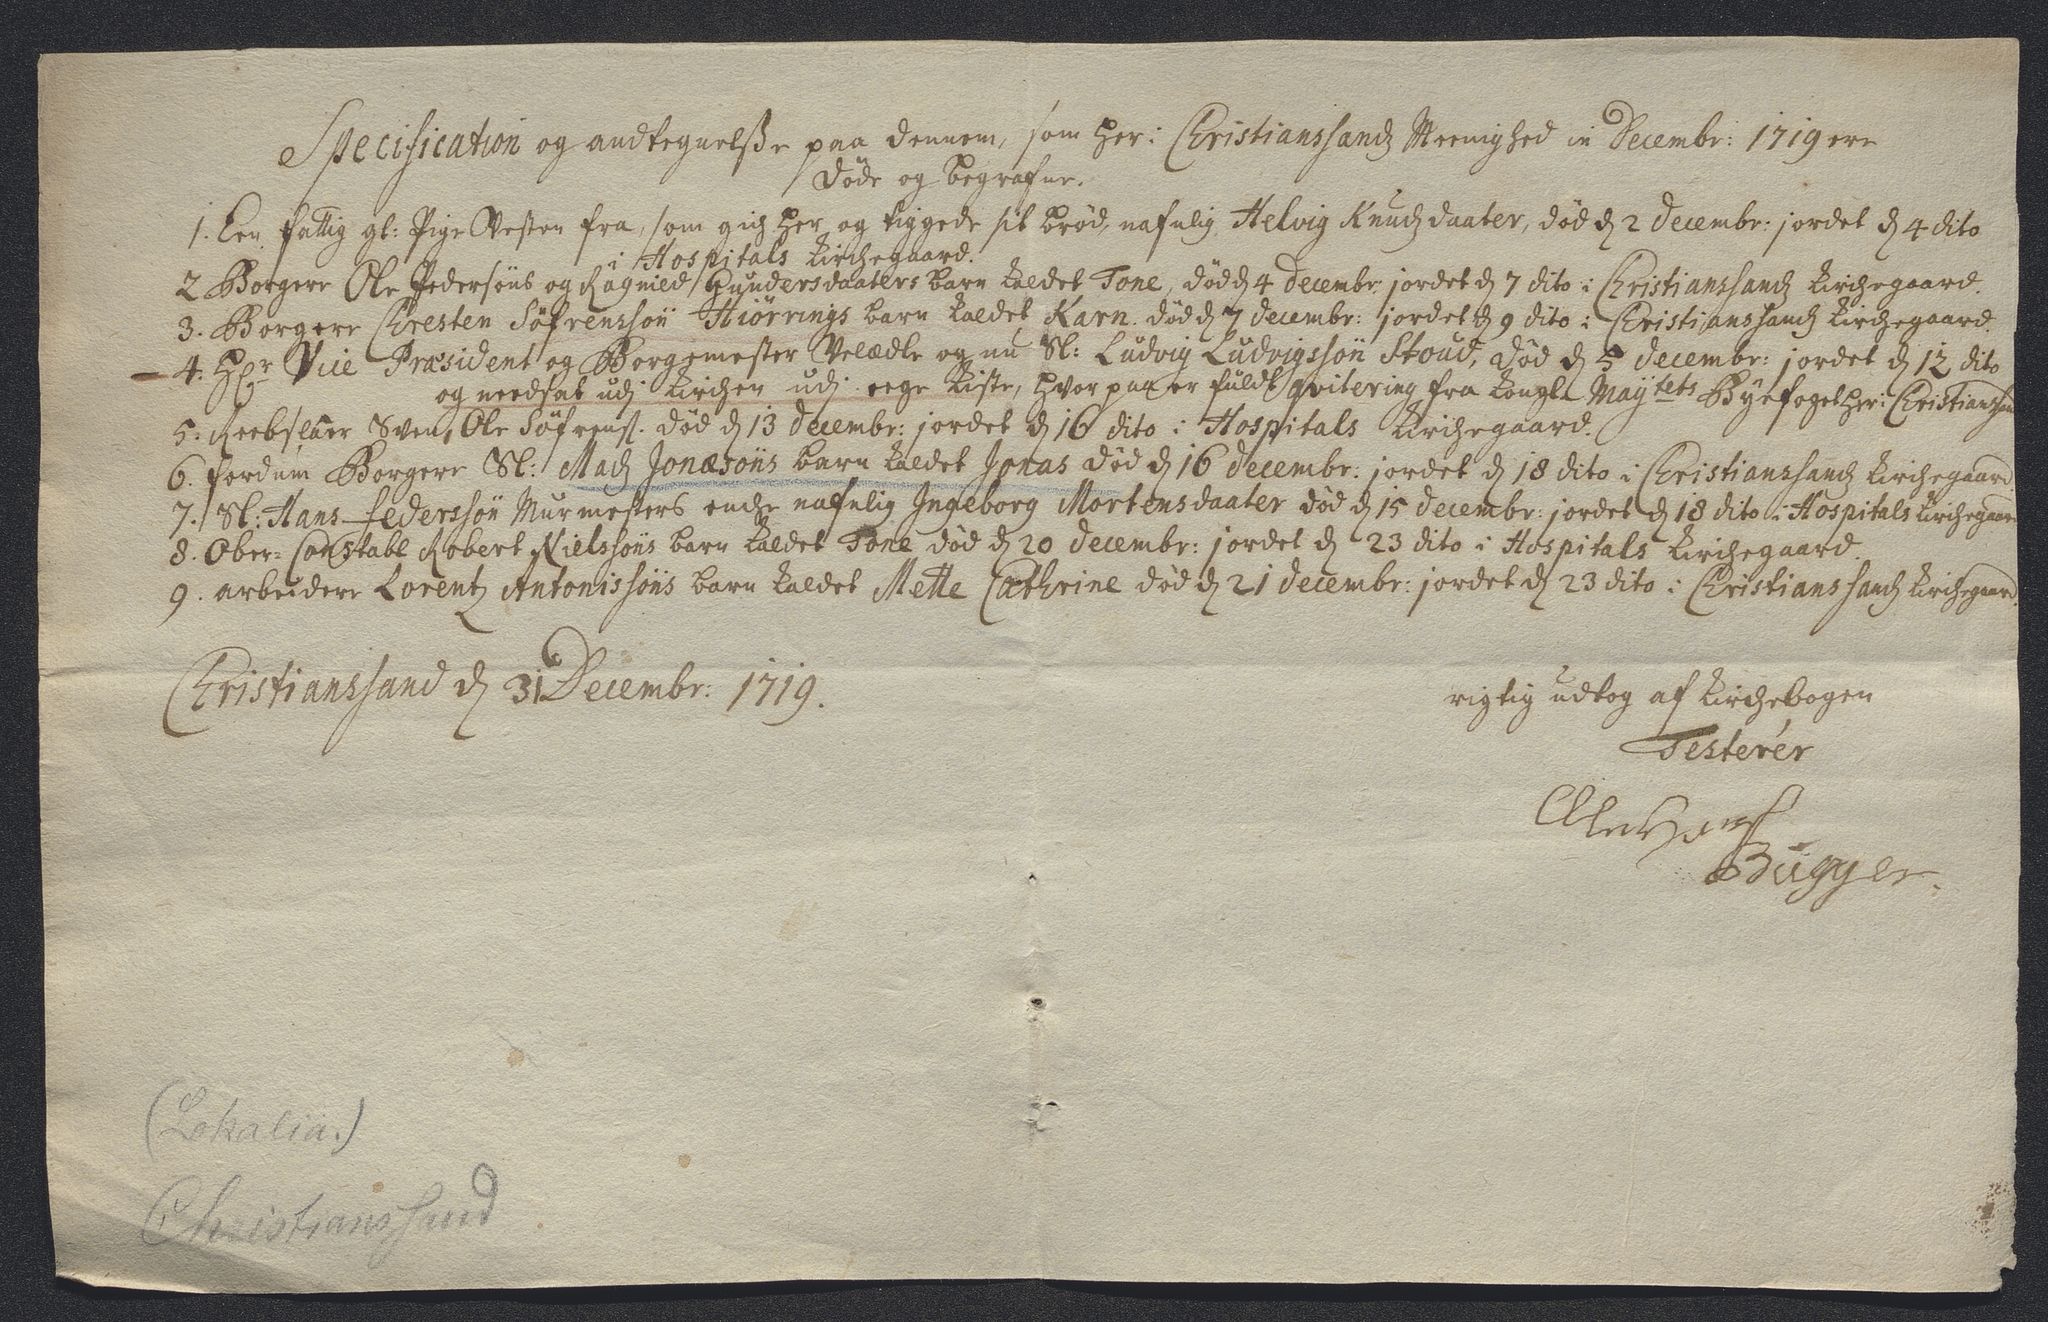 Specification og andtegnelsße paa dennem, som her i Christianssandz Meenighed in Decembr: 1719 ere
døde og begrafne.
1. Een fattig gl: Pige Vesten fra, som gich her og tiggede sit brød, nafnlig Helvig Knudzdaater, død d 2 decembr: jordet d 4 dito
i Hospitals Kirchegaard.
2 Borgere Ole Pedersøns og Ragnied Gundersdaaters barn kaldet Tone, død d 4 decembr, jordet d 7 dito i Christianssandz Kirchegaard.
3. Borgere Chresten Søfrenssøn Hiørrings barn kaldet Karn. død d 7 decembr: jordet d 9 dito i Christianssandz Kirchegaard.
4. Hr Vice Præsident og Borgemester Velædle og nu Sl: Ludvig Ludvigssøn Stoud, død d 5 decembr: jordet d 12 dito
og needsat udj Kirchen udj eege Kiste, hvor paa er fuldt qvitering fra Kongl. Maytets Byefoget her i Christianssan
5. Reebslaer Sven, Ole Søfrens. død d 13 decembr: jordet d 16 dito i Hospitals Kirchegaard.
6. fordum Borgere Sl: Madz Jonæsøns barn kaldet Jonas død d 16 decembr: jordet d 18 dito i Christianssandz Kirchegaard
7. Sl: Hans Federssøn Murmesters encke nafnlig Ingeborg Mortensdaater død d 15 decembr: jordet d 18 dito i Hospitals Kirchegaar
8. Ober=Constabl Robert Nielssøns barn kaldet Tone død d 20 decembr: jordet d 23 dito i Hospitals Kirchegaard.
9. arbeidere Lorentz Antonissøns barn kaldet Mette Cathrine død d 21 decembr: jordet d 23 dito i Christianssandz Kirchegaard.
Christianssand d 31 Decembr: 1719.
rigtig udtog af Kirchebogen
Testerer
Ole Hanss
Bugger.
(Lokalia.)
Christianssand